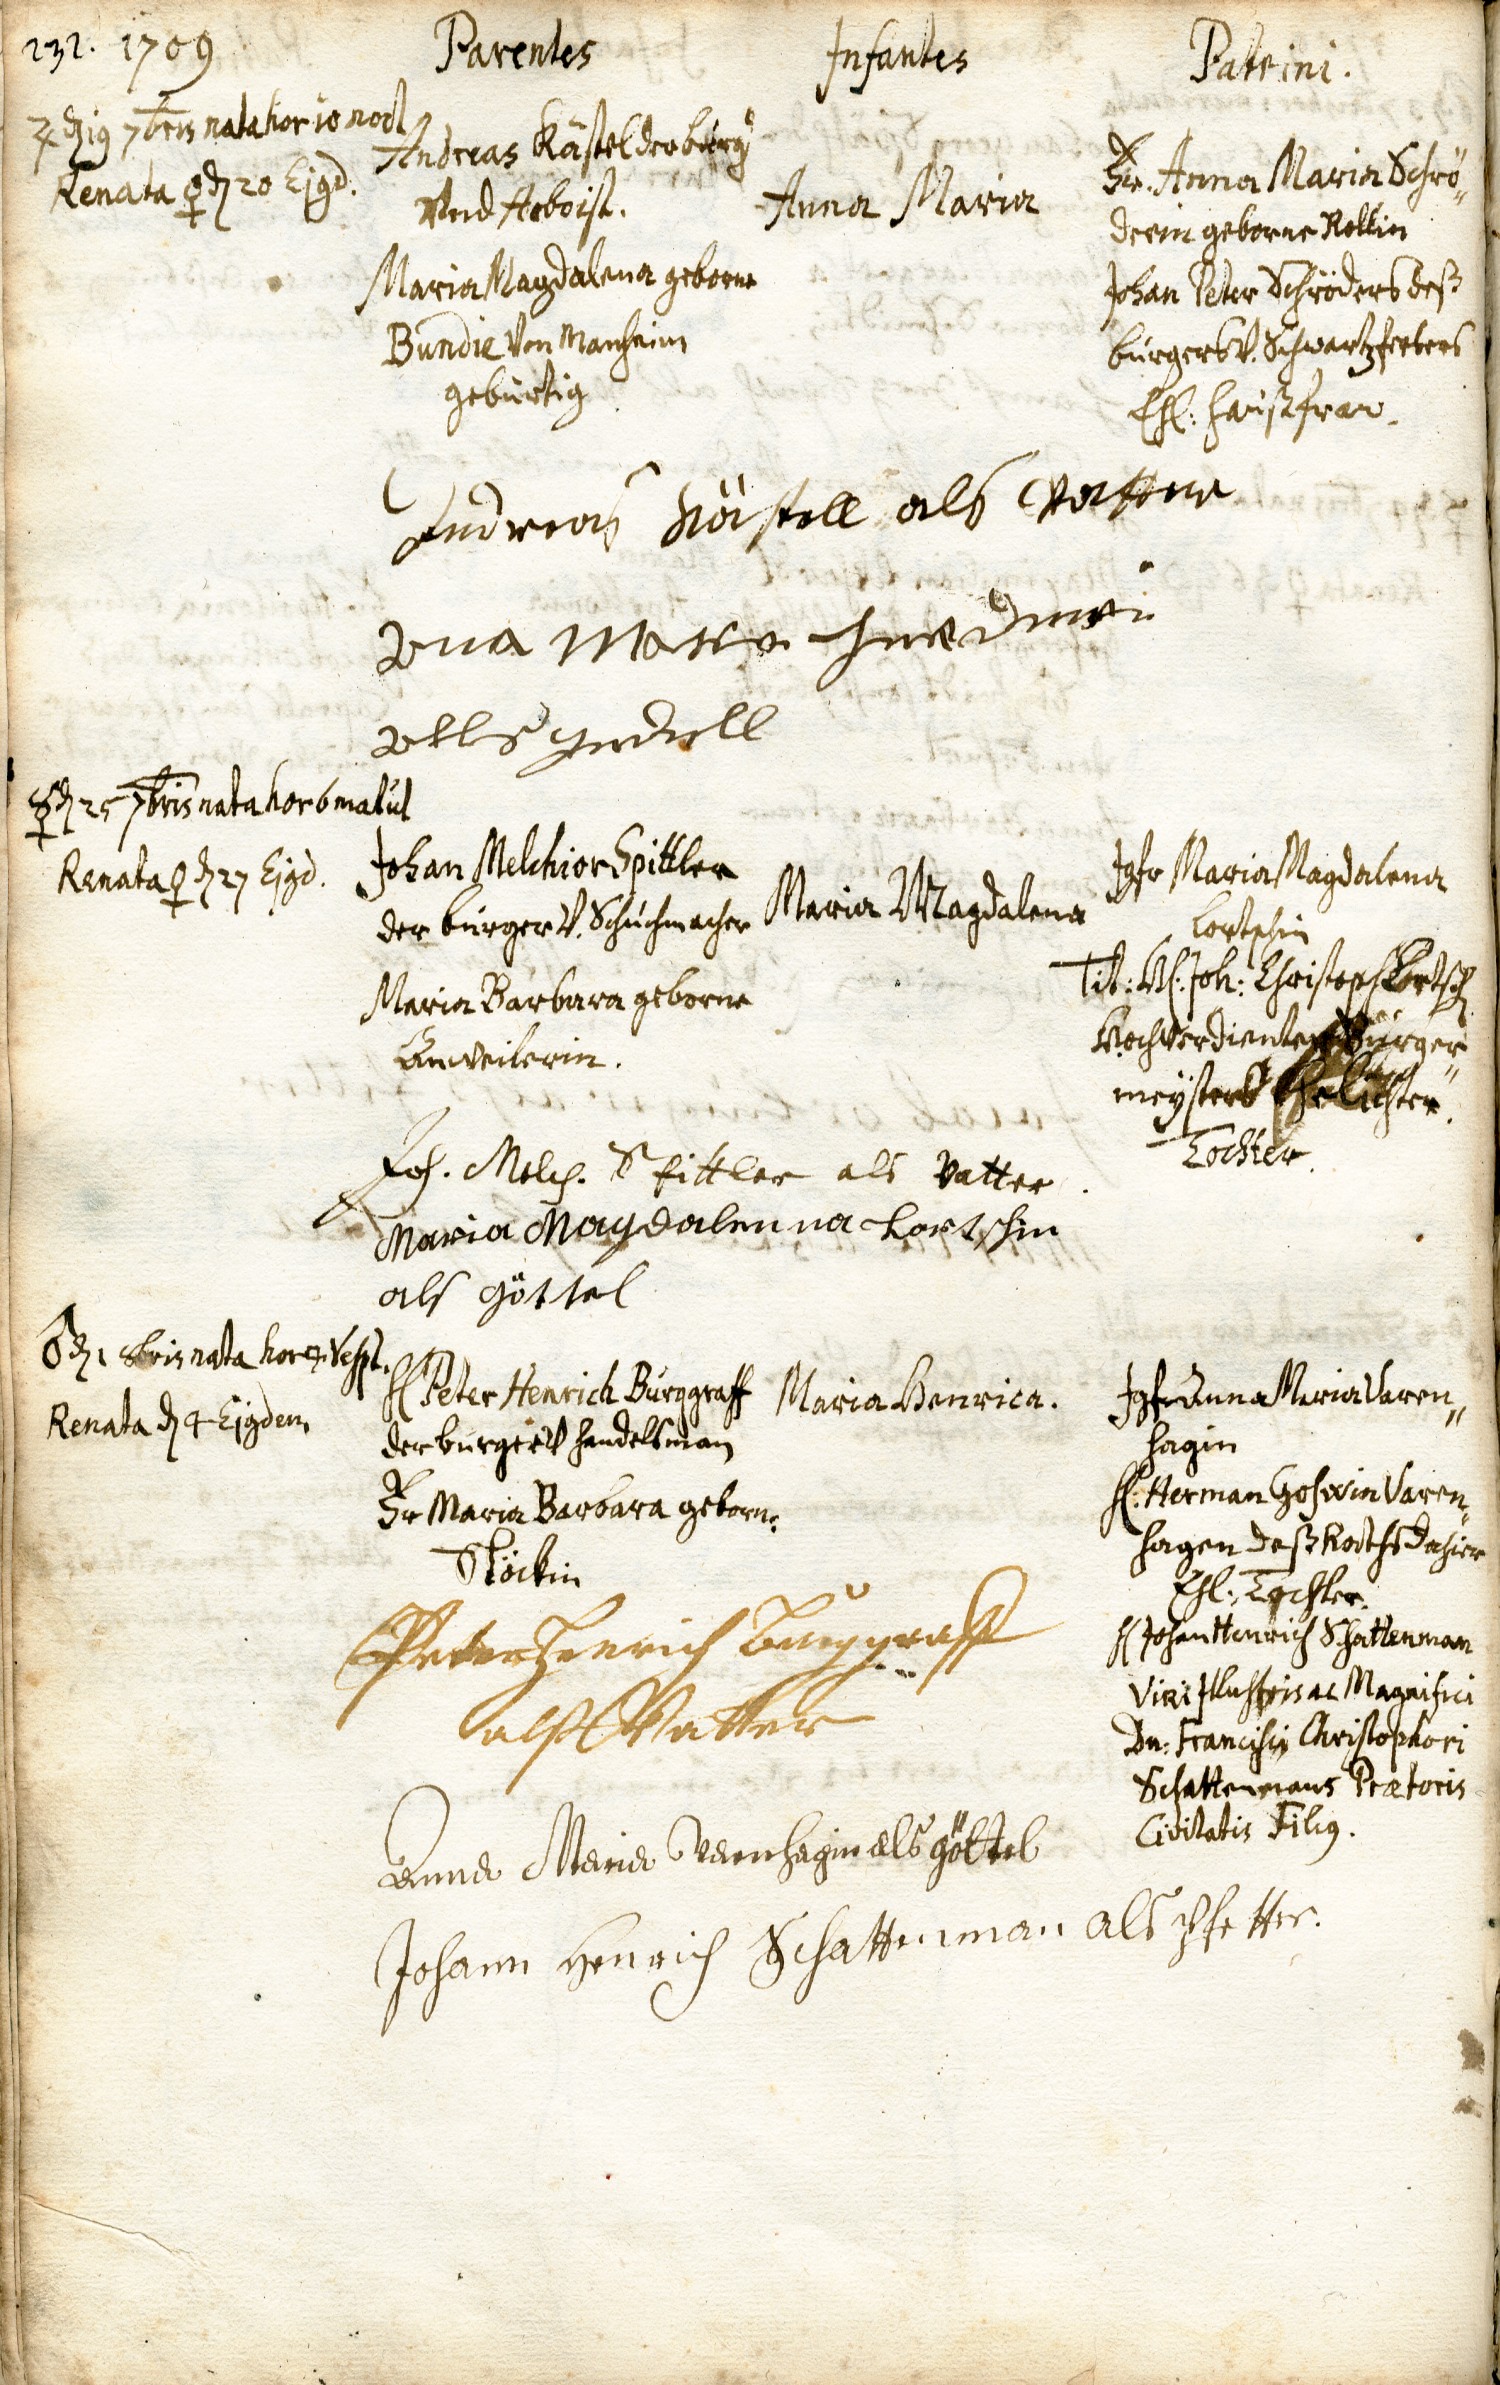 232. 1709 Parentes Infantes Patrini.
♃ d 19 7bris nata hor 10 noct
Renata ♀ d 20 Ejgd.
Andreas Kästel der burgr
Vnd Hoboist.
Maria Magdalena geborne
Bundie Von Manheim
gebürtig
Anna Maria
Fr. Anna Maria Schrö„
derin geborne Roltin
Johan Peter Schröders deß
burgers V. Schwartzferbers
Ehl: haußfraw.
Andreas Kästell als Vatter
Ana Maria
als
☿ d 25 7bris nata hor 6 matut
Renata ♀ d 27 Ejgd.
Johan Melchior Spittler
der burger V. Schuchmacher
Maria Barbara geborne
Anweilerin.
Maria Magdalena
Jgfr Maria Magdalena
Cortschin
Tit: H: Joh: Christoph Cortsch
Hochverdienten Bürger„
meysters Ehelichter
Tochter.
Joh. Melch. Spittler als Vatter.
Maria Magdalenna Cortschin
als Göttel
♂ d 1 8bris nata hor 7 Vesp.
Renata d 4 Ejgdem
H Peter Henrich Burggraff
der burger V handelsman
Fr Maria Barbara geborn:
Stöckin
Maria Henrica.
Jgfr Anna Maria Varen„
hagin
H: Herman Goswin Varen„
hagen deß Raths dahier
Ehl: Tochter.
H Johan Henrich Schattenman
Viri Illustris ac Magnifici
Dn: Francisci Christophori
Schattenmans Prætoris
Civitatis Filig.
Peter Henrich Burggraff
alß Vatter
Anna Maria Varnhagin als göttel
Johann Henrich Schattenman als Pfetter.